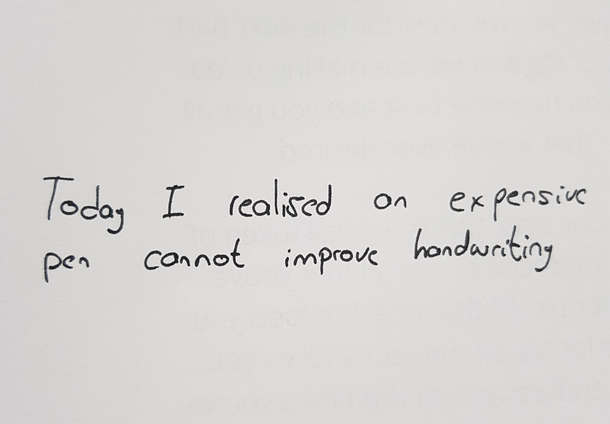 Today I realised an expensive
pen cannot improve handwriting